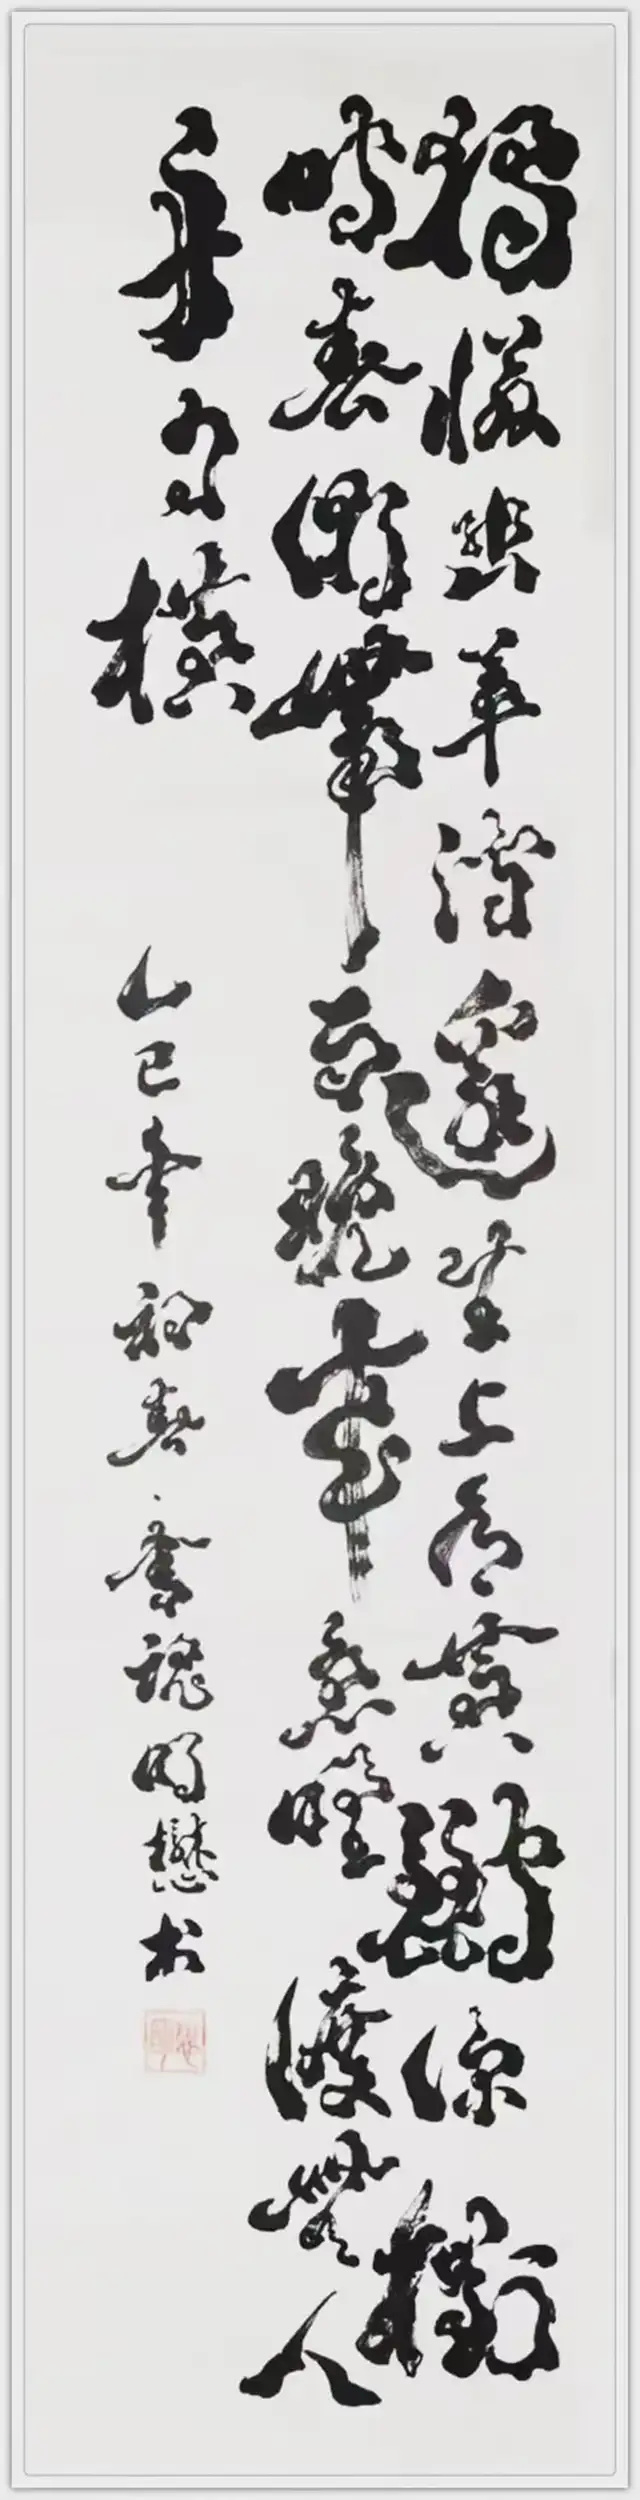 獨憐幽草澗邊生上有黃鸝深樹
鳴春潮帶雨晚來急野渡無人
舟自橫
乙巳年初春 明懋书